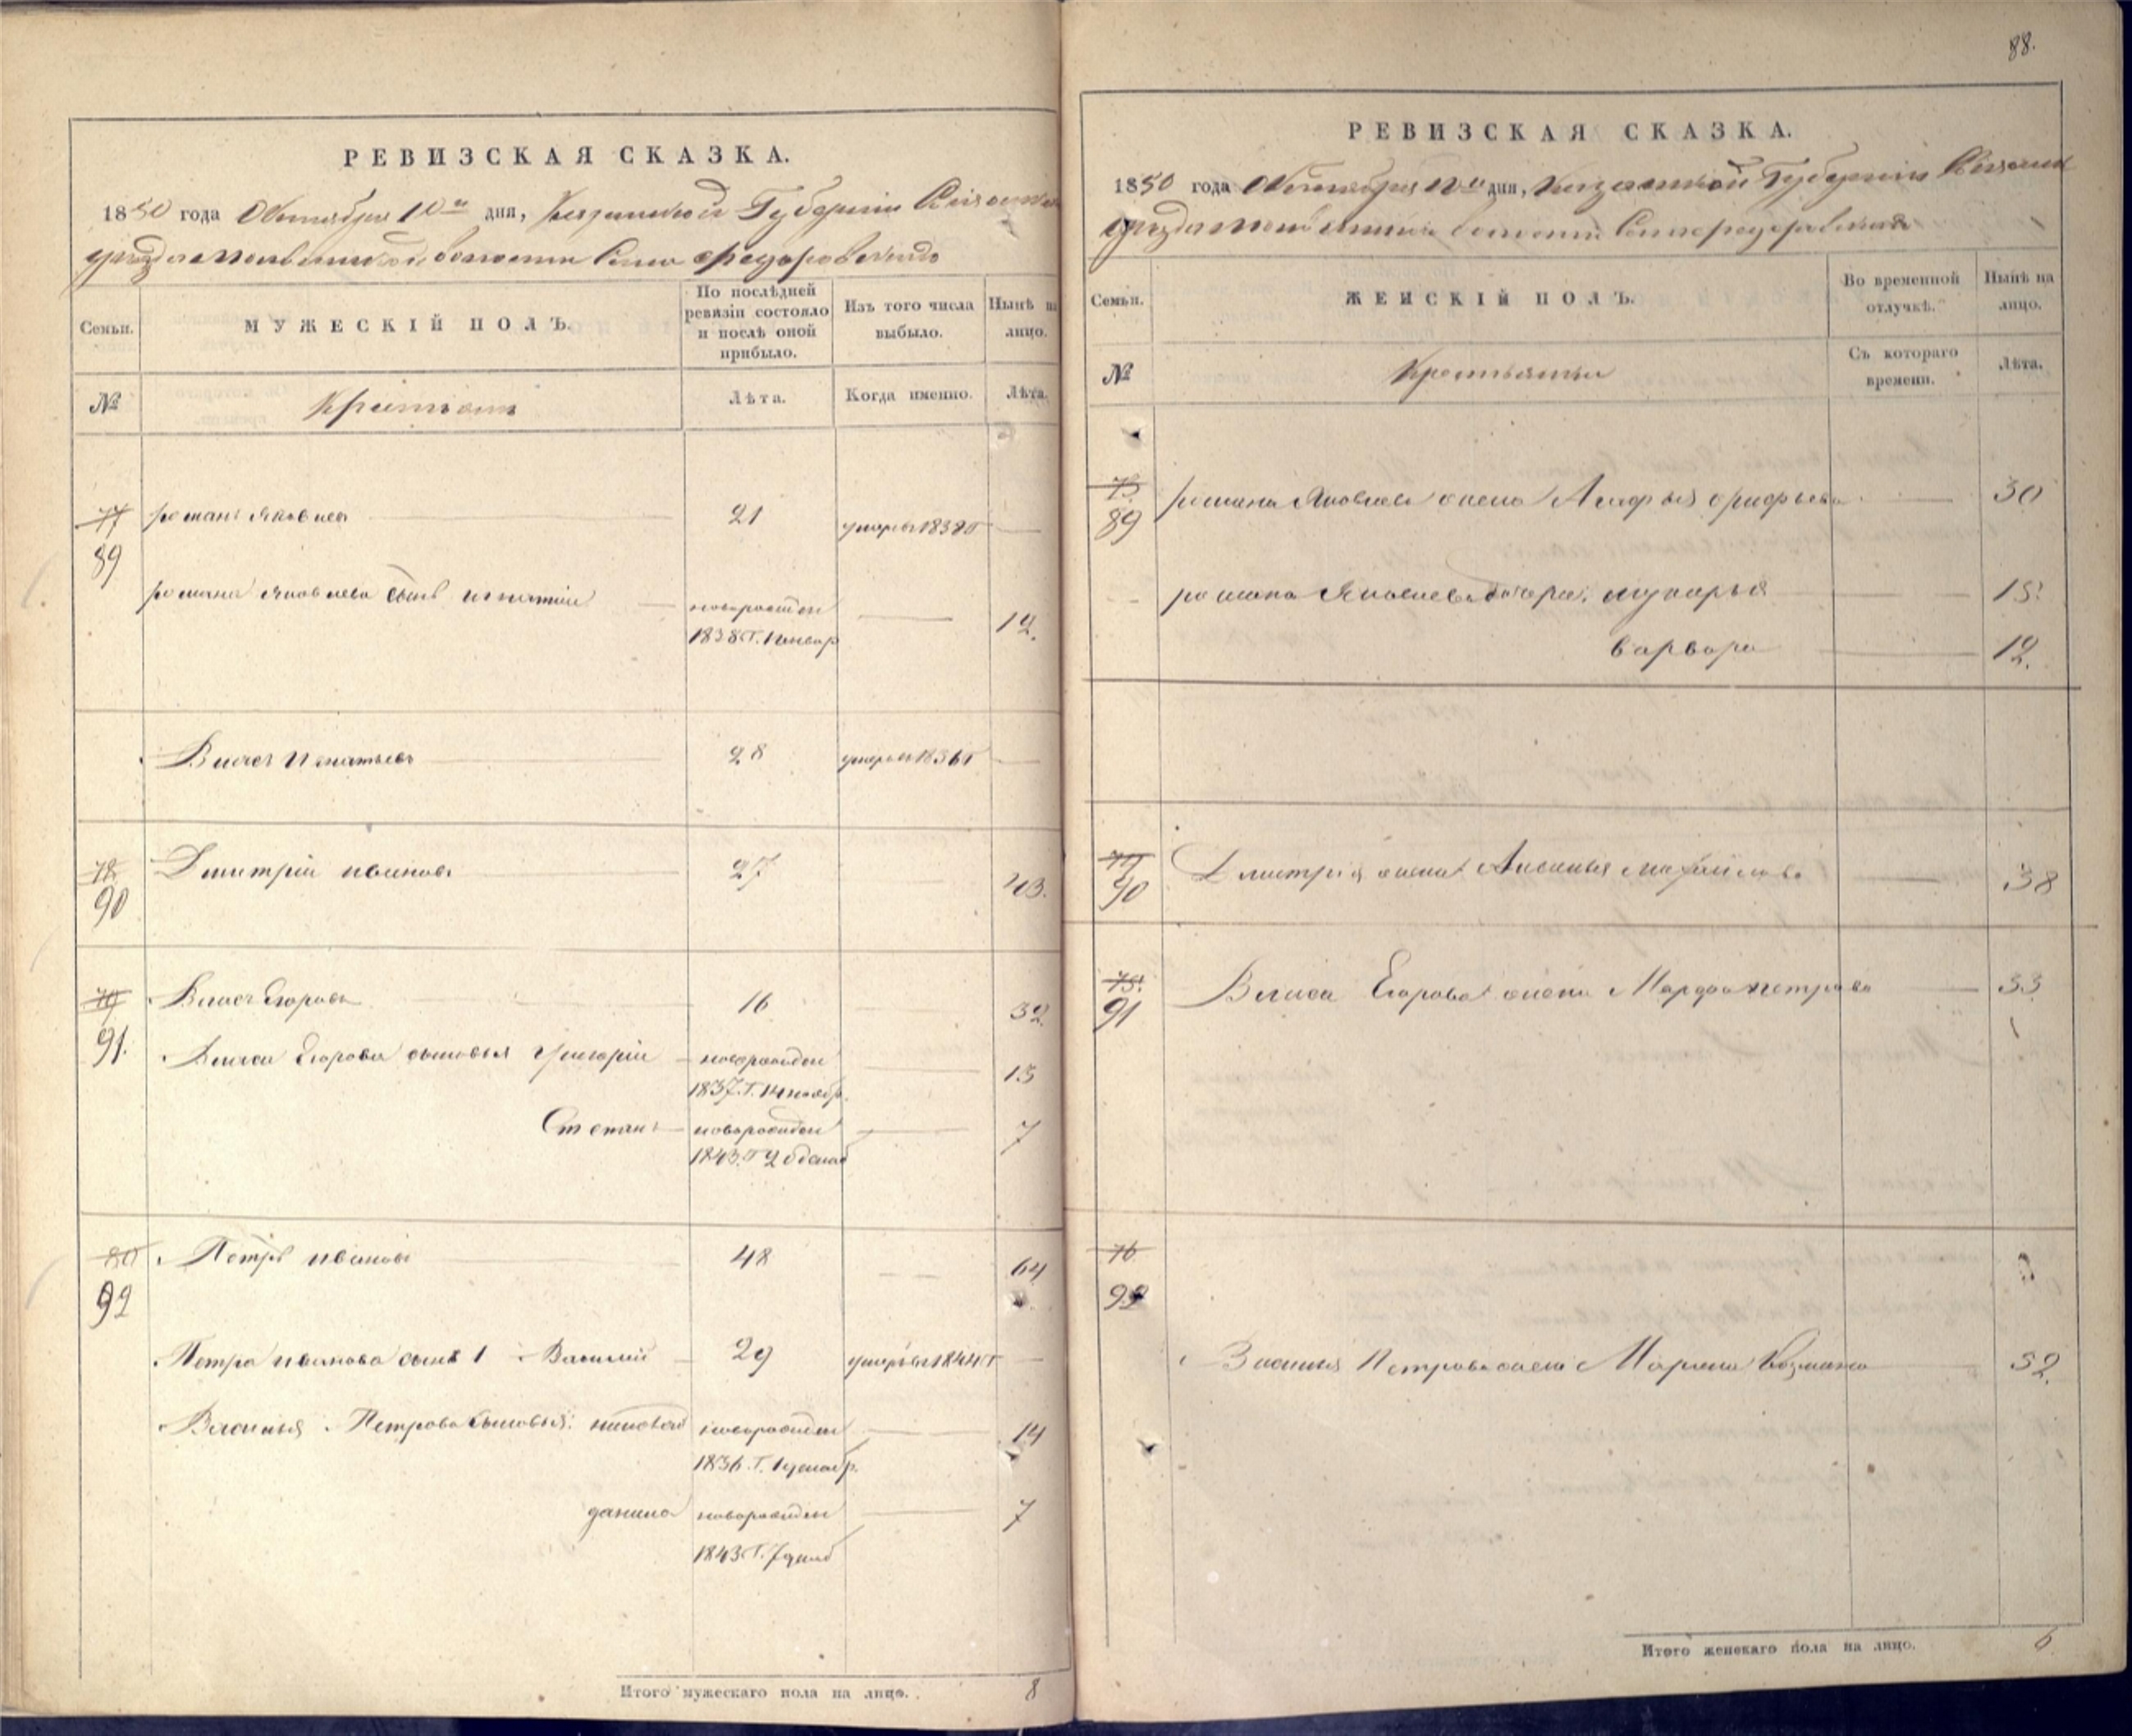 РЕВИЗСКАЯ СКАЗКА.
1850 года Октября 10го дня, Казанской Губернии
уезда волости Села
Семьи.
МУЖЕСКІЙ ПОЛЪ.
По послѣдней ревизіи состояло и послѣ оной прибыло.
Изъ того числа выбыло.
Нынѣ на лицо.
№
Крестьяне
Лѣта.
Когда именно.
Лѣта.
77
89
романъ яковлевъ
21
умеръ 1838 г
романа яковлева сынъ игнатій
новорожден
1838. Г. 1 январ
12.
Власъ Игнатьевъ
28
умеръ 1836 г
78
90
Дмитрій ивановъ
27
43.
79
91.
Власъ Егоровъ
16
32.
Власа Егорова сыновья Григорій
новорожден
1837. Г. 14 ноябр.
13
Степанъ
новорожден
1843. Г
7
80
92
Петръ ивановъ
48
64
Петра иванова сынъ 1 й Василий
29
умеръ 1844 г
Василья Петрова сыновья:
новорожден
1836. Г.
14
данило
новорожден
1843. Г. 7 декаб
7
Итого мужескаго пола на лицо.
8
88.
РЕВИЗСКАЯ СКАЗКА.
1850 года Октября 10го дня, Казанской Губернии
уезда волости Села
Семьи.
ЖЕНСКІЙ ПОЛЪ.
Во временной отлучкѣ.
Нынѣ на лицо.
№
Крестьянки
Съ котораго времени.
Лѣта.
73
89
романа Яковлева жена
30
романа Яковлева дочери: лукарья
15
варвара
12.
90
Дмитрія жена михайлова
38
75.
91
Власа Егорова жена Марфа петрова
33
76
92
Василья Петрова жена Марина Козмина
52.
Итого женскаго пола на лицо.
6